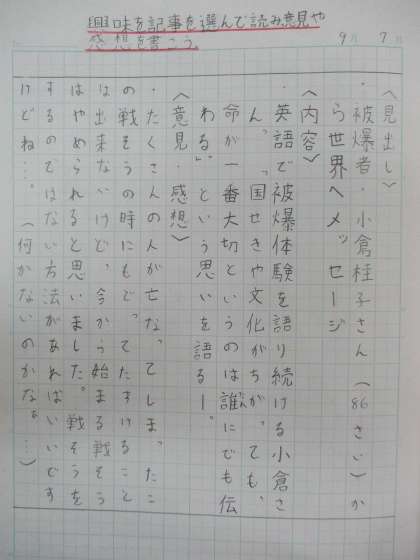 興味を記事を選んで読み意見や
感想を書こう。
9月7日
〈見出し〉
・被爆者・小倉桂子さん(86さい)か
ら世界へメッセージ
〈内容〉
英語で被爆体験を語り続ける小倉さ
ん、「国せきや文化がちがっても、
命が一番大切というのは誰にでも伝
わる」という思いを語る―。
〈意見・感想〉
・たくさんの人が亡なってしまったこ
の戦そうの時にもどってたすけること
は出来ないけど、今から始まる戦そう
はやめられると思いました。戦そうを
するのではない方法があればいいです
けどね…。(何かないのかなぁ…)